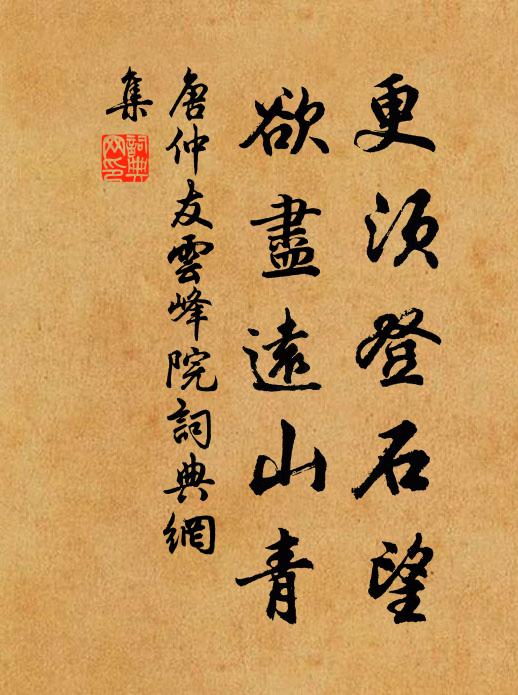 更須登石望
欲盡遠山青
唐仲友雲峰院詞典網
集
詞典
网印